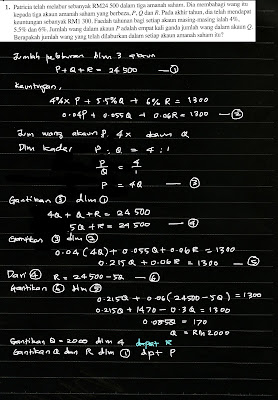 1. Patricia telah melabur sebanyak RM24 500 dalam tiga amanah saham. Dia membahagi wang itu
kepada tiga akaun amanah saham yang berbeza, P, Q dan R. Pada akhir tahun, dia telah mendapat
keuntungan sebanyak RM1 300. Faedah tahunan bagi setiap akaun masing-masing ialah 4%,
5.5% dan 6%. Jumlah wang dalam akaun P adalah empat kali ganda jumlah wang dalam akaun Q.
Berapakah jumlah wang yang telah dilaburkan dalam setiap akaun amanah saham itu?
Jumlah pelaburan dlm 3 akaun
P+Q+R = 24 500 — ①
Keuntungan,
4% x P + 5.5% Q + 6% R = 1300
0.04P + 0.055Q + 0.06R = 1300 — ②
Jum wang akaun P, 4x akaun Q
Dlm kadar P : Q = 4 : 1
P/Q = 4/1
P = 4Q — ③
Gantikan ③ dlm ①
4Q + Q + R = 24 500
5Q + R = 24 500 — ④
Gantikan ③ dlm ②
0.04 (4Q) + 0.055Q + 0.06R = 1300
0.215Q + 0.06R = 1300 — ⑤
Dari ④ R = 24 500 - 5Q — ⑥
Gantikan ⑥ dlm ⑤
0.215Q + 0.06 (24500 - 5Q) = 1300
0.215Q + 1470 - 0.3Q = 1300
0.085Q = 170
Q = RM 2000
Gantikan Q = 2000 dlm 4 dapat R
Gantikan Q dan R dlm ① dpt P